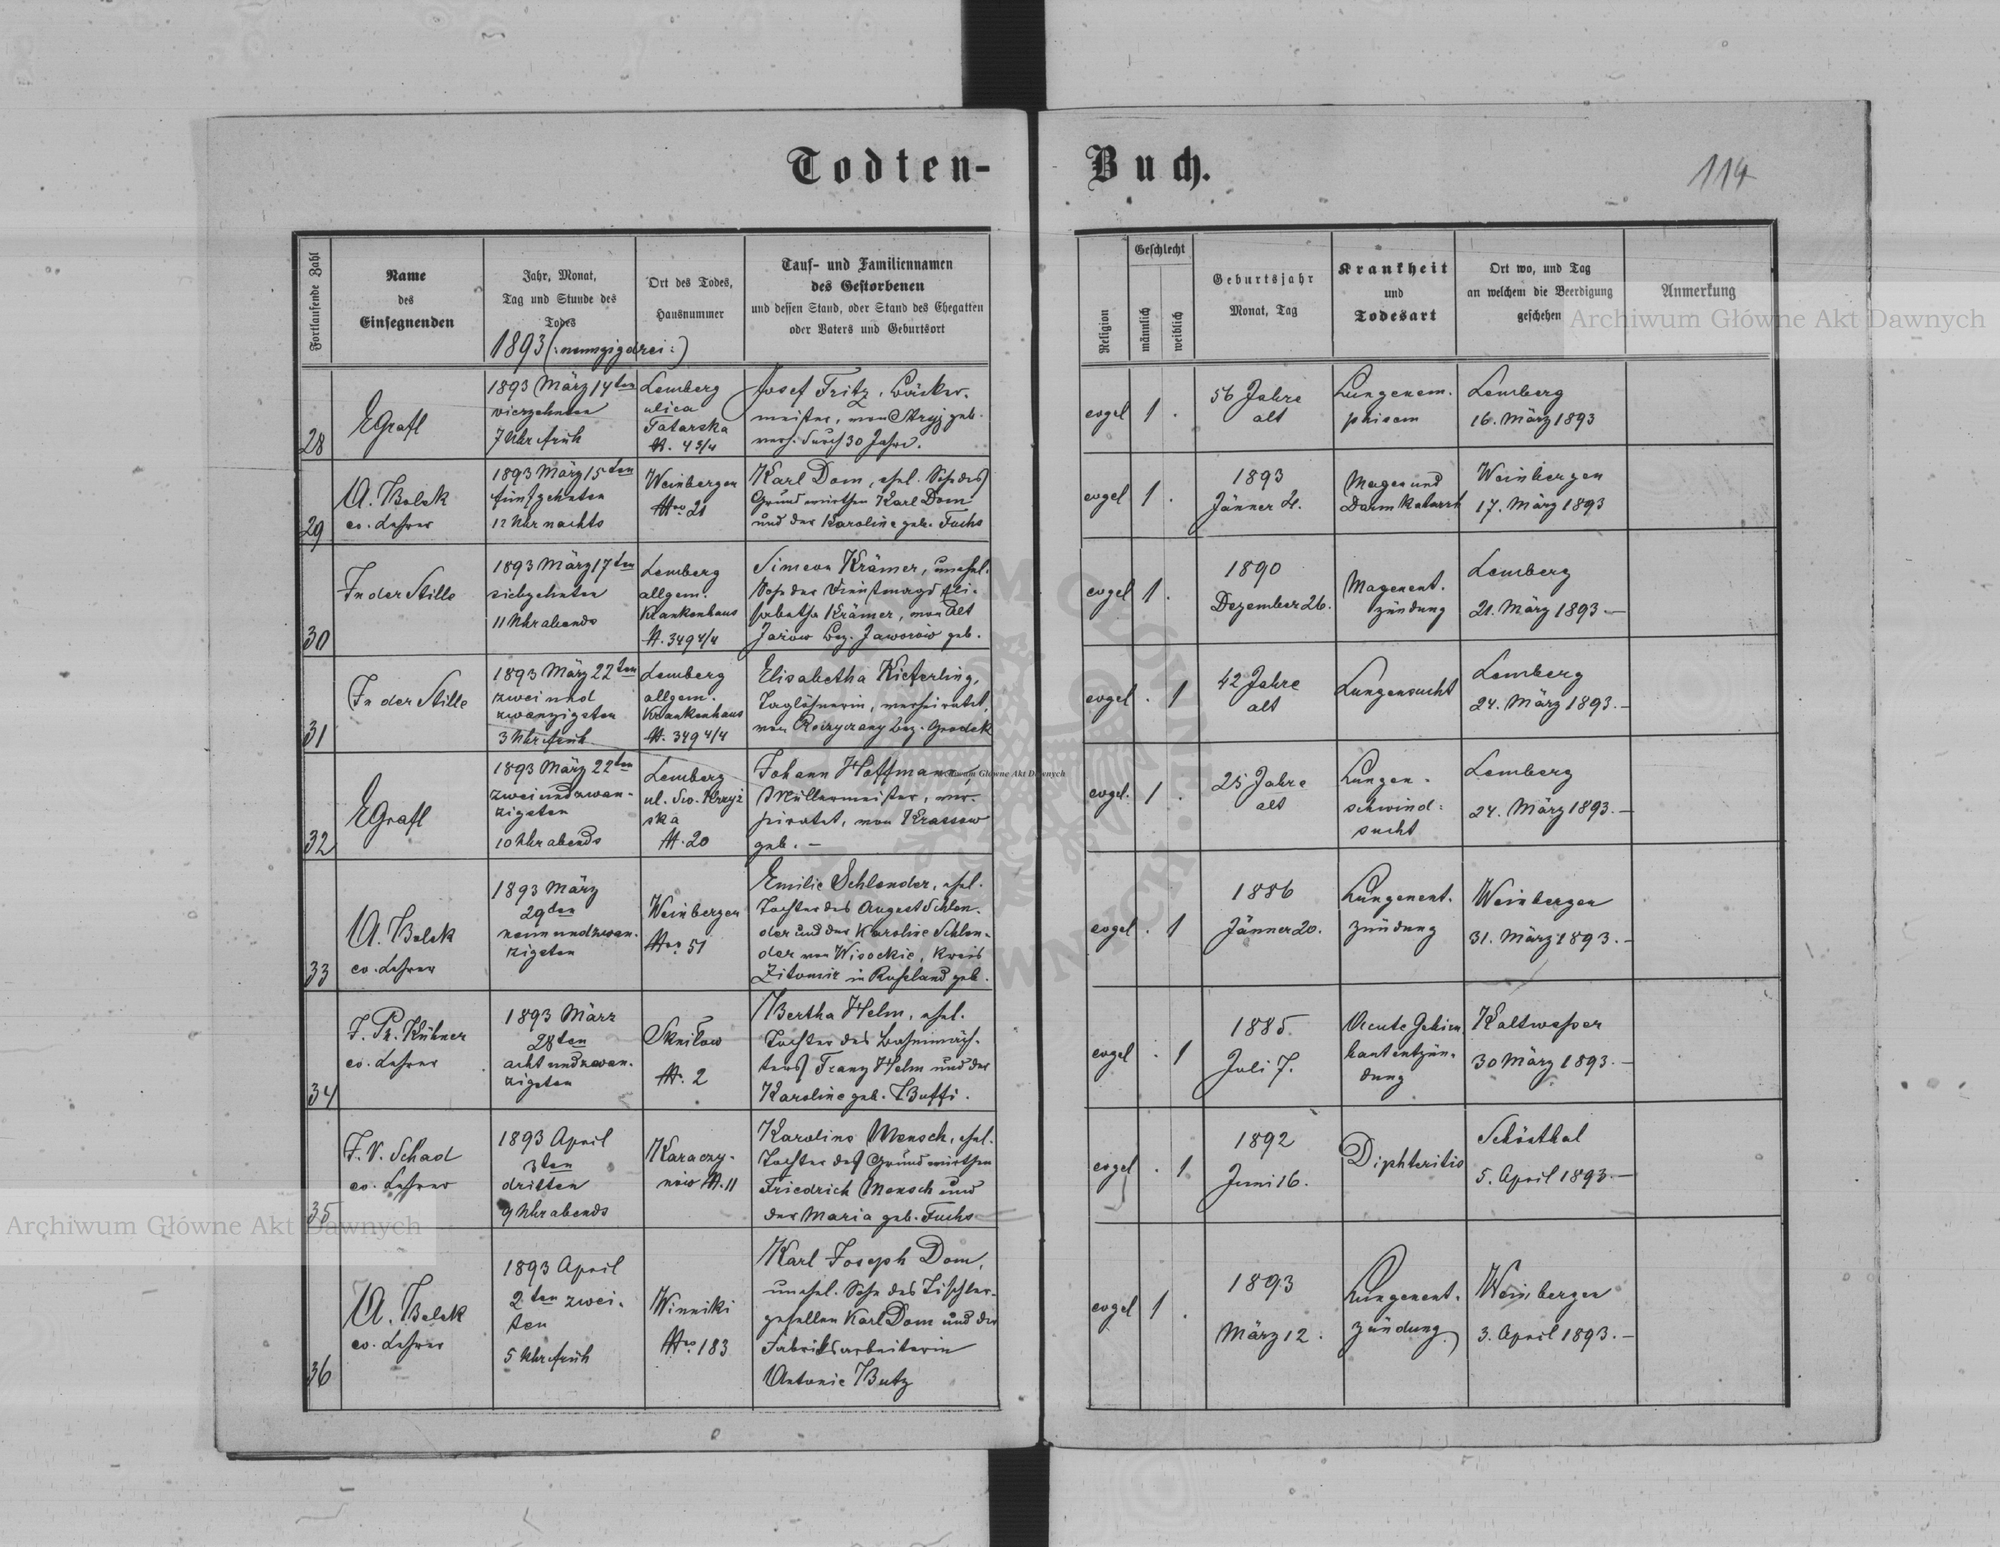 Todten-Buch.
114
Fortlaufende Zahl
Name
des
Einsegnenden
Jahr, Monat,
Tag und Stunde des
Todes
1893 (:neunzigdrei:)
Ort des Todes,
Hausnummer
Tauf- und Familiennamen
des Gestorbenen
und dessen Stand, oder Stand des Ehegatten
oder Vaters und Geburtsort
Religion
Geschlecht
männlich
weiblich
Geburtsjahr
Monat, Tag
Krankheit
und
Todesart
Ort wo, und Tag
an welchem die Beerdigung
geschehen
Anmerkung
Archiwum Główne Akt Dawnych
28
EGrafl
1893 März 14ten
vierzehnten
7 Uhr früh
Lemberg
ulica
Tatarska
N. 4 3/4
Josef Fritz, Bäcker-
meister, von Stryj geb.
verh. durch 30 Jahre.
evgel
1 .
56 Jahre
alt
Lungenem-
phisem
Lemberg
16. März 1893
29
A. Bolek
ev. Lehrer
1893 März 15ten
fünfzehnten
12 Uhr nachts
Weinbergen
Nro 21
Karl Dom, ehel. Sohn des
Grundwirthen Karl Dom
und der Karoline geb. Fuchs
evgel
1 .
1893
Jänner 4.
Magen und
Darmkatarrh
Weinbergen
17. März 1893
30
In der Stille
1893 März 17ten
siebzehnten
11 Uhr abends
Lemberg
allgem.
Krankenhaus
N. 349 4/4
Simeon Krämer, unehel.
Sohn der Dienstmagd Eli-
sabetha Krämer, von Alt
Jazow Bez. Jaworów geb.
evgel
1 .
1890
Dezember 26.
Magenent-
zündung
Lemberg
21. März 1893 —
31
In der Stille
1893 März 22ten
zwei und
zwanzigsten
3 Uhr früh
Lemberg
allgem.
Krankenhaus
N. 349 4/4
Elisabetha Kieferling,
Taglöhnerin, verheiratet,
von Bez. Grodek
evgel
. 1
42 Jahre
alt
Lungensucht
Lemberg
24. März 1893. —
32
EGrafl
1893 März 22ten
zweiundzwan-
zigsten
10 Uhr abends
Lemberg
ul. Św. Krzyż
ska
N. 20
Johann Hoffmann,
Müllermeister, ver-
heiratet, von Krassow
geb. —
Archiwum Główne Akt Dawnych
evgel.
1 .
25 Jahre
alt
Lungen-
schwind-
sucht
Lemberg
24. März 1893. —
33
A. Bolek
ev. Lehrer
1893 März
29ten
neunundzwan-
zigsten
Weinbergen
Nro 51
Emilie Schlender, ehel.
Tochter des August Schlen-
der und der Karoline Schlen-
der von Wisockie, Kreis
Zitomir in Rußland geb.
evgel
. 1
1886
Jänner 20.
Lungenent-
zündung
Weinbergen
31. März 1893. —
34
J. Ph. Kühner
ev. Lehrer
1893 März
28ten
achtundzwan-
zigsten
Skniłow
N. 2
Bertha Helm, ehel.
Tochter des Bahnwäch-
ters Franz Helm und der
Karoline geb. Buffi.
evgel
. 1
1885
Juli 7.
Acute Gehirn
hautentzün-
dung
Kaltwasser
30 März 1893. —
35
F. V. Schad
ev. Lehrer
1893 April
3ten
dritten
9 Uhr abends
Karaczy-
now N. 11
Karoline Mensch, ehel.
Tochter des Grundwirthen
Friedrich Mensch und
der Maria geb. Fuchs
evgel
. 1
1892
Juni 16.
Diphteritis
Schösthal
5. April 1893. —
Archiwum Główne Akt Dawnych
36
A. Bolek
ev. Lehrer
1893 April
2ten zwei-
ten
5 Uhr früh
Winniki
Nro 183
Karl Joseph Dom,
unehel. Sohn des Tischler-
gesellen Karl Dom und der
Fabriksarbeiterin
Antonie Butz
evgel
1 .
1893
März 12.
Lungenent-
zündung
Weinbergen
3. April 1893. —